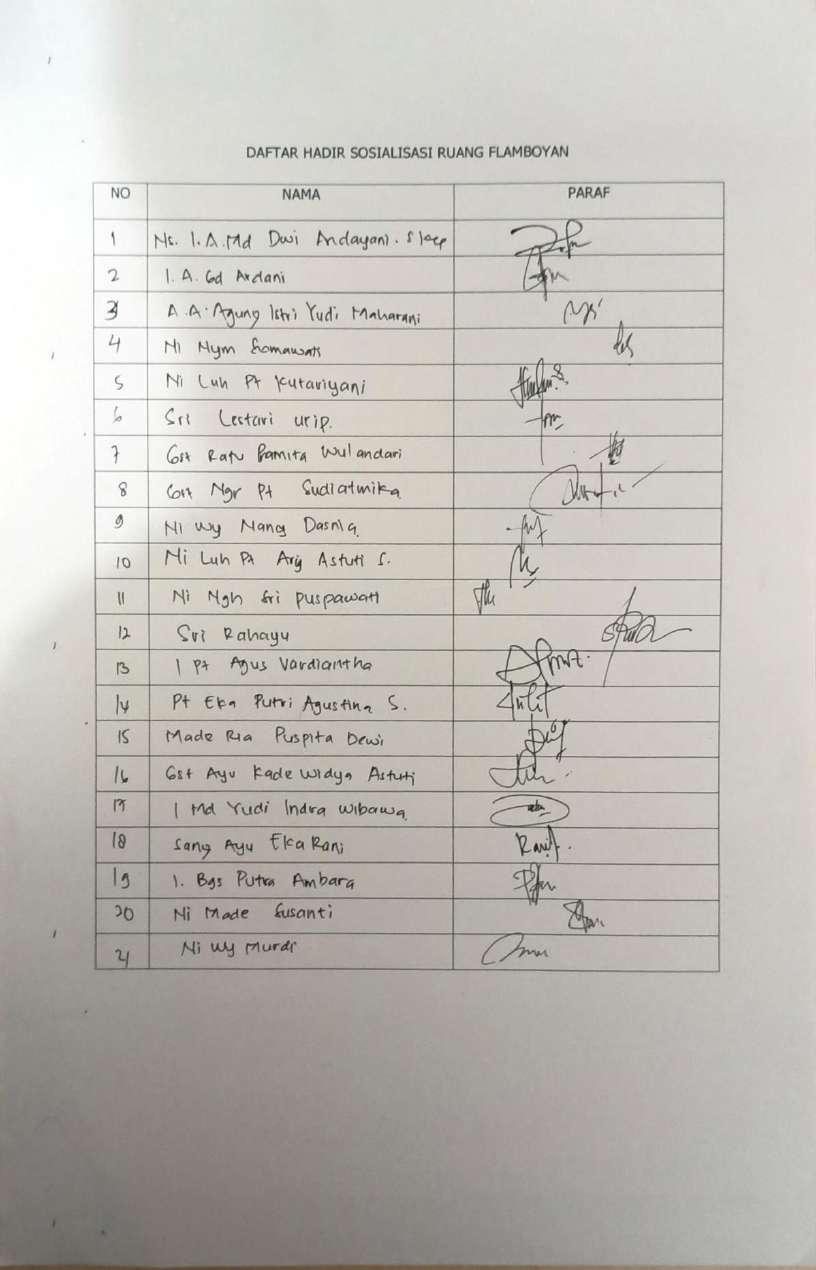 DAFTAR HADIR SOSIALISASI RUANG FLAMBOYAN
NO NAMA PARAF
1 Ns. I.A.Md Dwi Andayani. S.kep
2 I. A. Gd Ardani
3 A.A. Agung Istri Yudi Maharani
4 Ni Nym Somawati
5 Ni Luh Pt Kutariyani
6 Sri Lestari urip.
7 Gst Ratu Pramita Wulandari
8 Gst Ngr Pt Sudiatmika
9 Ni Wy Nang Dasnia
10 Ni Luh Pt Ary Astuti S.
11 Ni Ngh Sri puspawati
12 Sri Rahayu
13 I Pt Agus Vardiantha
14 Pt Eka Putri Agustina S.
15 Made Ria Puspita Dewi
16 Gst Ayu Kade Widya Astuti
17 I Md Yudi Indra Wibawa
18 Sang Ayu Eka Rani
19 I. Bgs Putra Ambara
20 Ni Made Susanti
21 Ni Wy Murdi